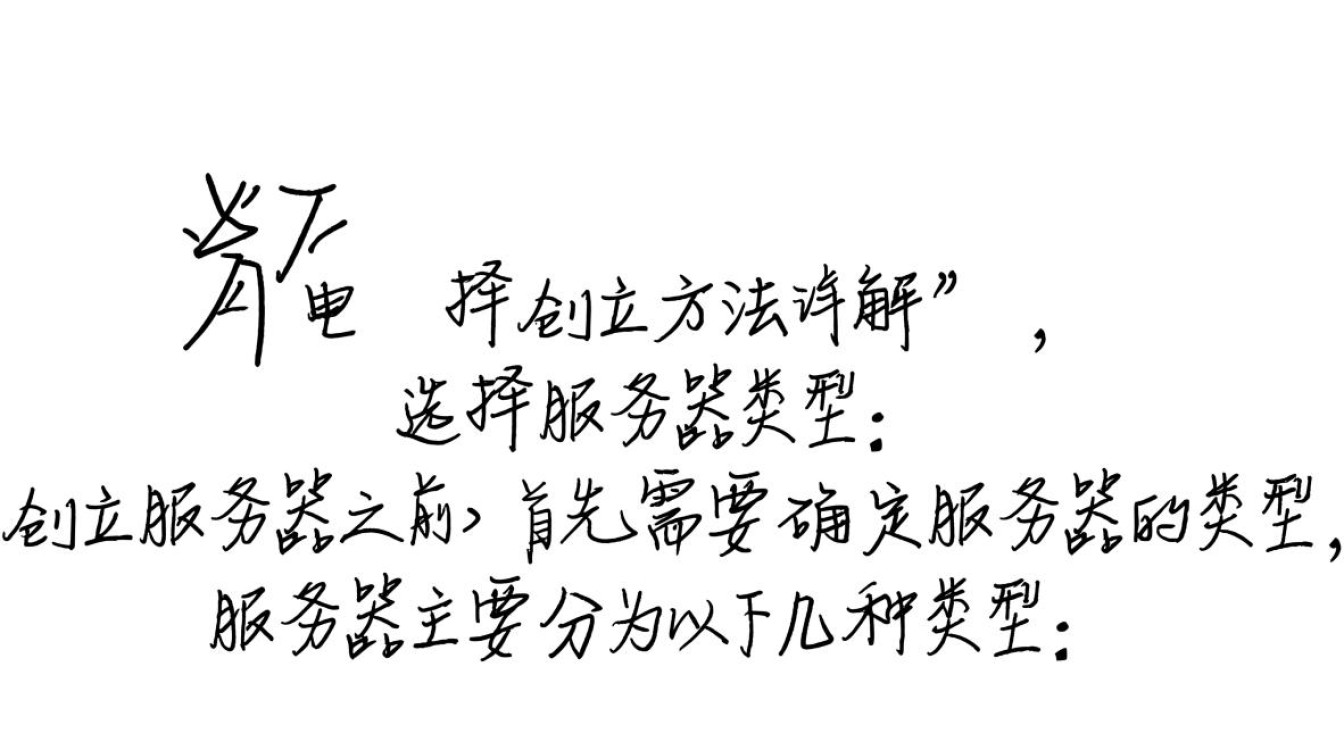 电 择创立方法详解” ,
选择服务器类型:
创立服务器之前, 首先需要确定服务器的类型,
服务器主要分为以下几种类型: